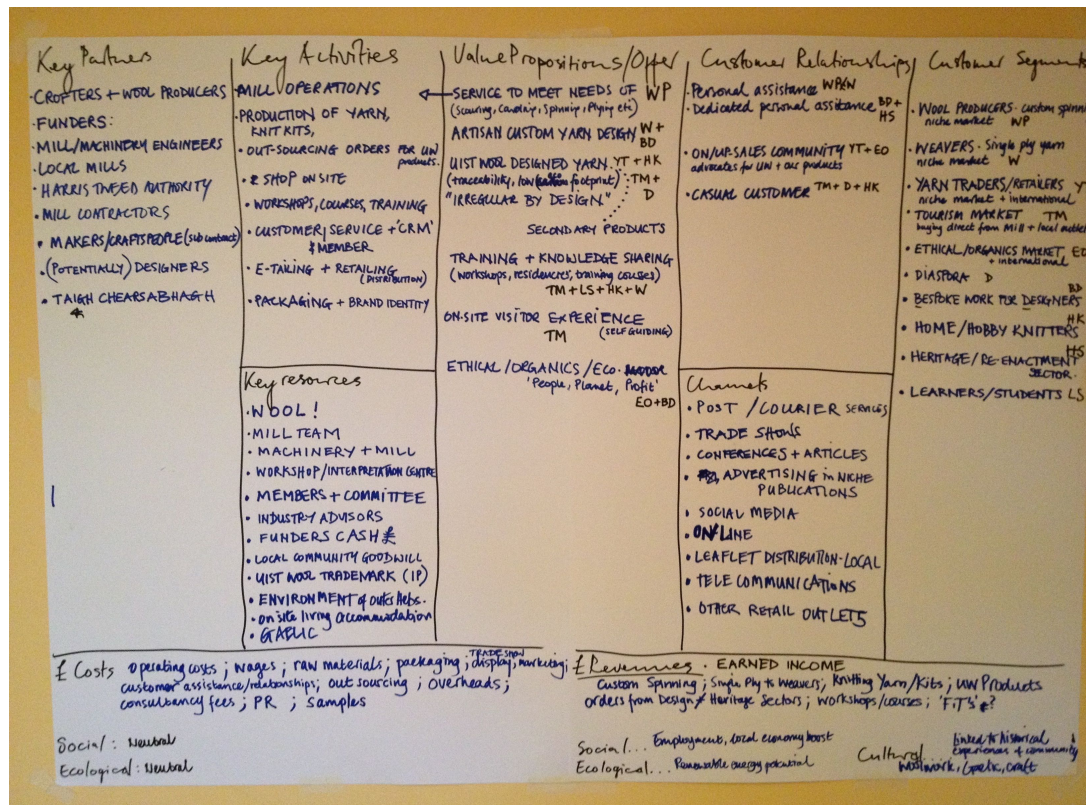 Key Partners
• CROFTERS + WOOL PRODUCERS
• FUNDERS:
• MILL/MACHINERY ENGINEERS
• LOCAL MILLS
• HARRIS TWEED AUTHORITY
• MILL CONTRACTORS
• MAKERS/CRAFTSPEOPLE (sub contract)
• (POTENTIALLY) DESIGNERS
• TAIGH CHEARSABHAGH
Key Activities
• MILL OPERATIONS
• PRODUCTION OF YARN,
KNIT KITS,
• OUT-SOURCING ORDERS FOR UW
products.
• SHOP ON SITE
• WORKSHOPS, COURSES, TRAINING
• CUSTOMER SERVICE + 'CRM'
& MEMBER
• E-TAILING + RETAILING
(DISTRIBUTION)
• PACKAGING + BRAND IDENTITY
Key resources
• WOOL!
• MILL TEAM
• MACHINERY + MILL
• WORKSHOP/INTERPRETATION CENTRE
• MEMBERS + COMMITTEE
• INDUSTRY ADVISORS
• FUNDERS CASH £
• LOCAL COMMUNITY GOODWILL
• UIST WOOL TRADEMARK (IP)
• ENVIRONMENT of outer Hebs.
• on site living accommodation
• GAELIC
Value Propositions/Offer
SERVICE TO MEET NEEDS OF WP
(Scouring, Carding, Spinning, Plying etc)
ARTISAN CUSTOM YARN DESIGN W +
BD
UIST WOOL DESIGNED YARN. YT + HK
(traceability, low footprint) TM +
"IRREGULAR BY DESIGN" D
SECONDARY PRODUCTS
TRAINING + KNOWLEDGE SHARING
(workshops, residencies, training courses)
TM + LS + HK + W
ON-SITE VISITOR EXPERIENCE
TM (SELF GUIDING)
ETHICAL/ORGANICS/ECO.
'People, Planet, Profit'
EO + BD
Customer Relationships
• Personal assistance WP/W
• Dedicated personal assistance BD +
HS
• ON/UP-SALES COMMUNITY YT + EO
advocates for UW + our products
• CASUAL CUSTOMER TM + D + HK
Channels
• POST / COURIER SERVICES
• TRADE SHOWS
• CONFERENCES + ARTICLES
• ADVERTISING in NICHE
PUBLICATIONS
• SOCIAL MEDIA
• ON LINE
• LEAFLET DISTRIBUTION - LOCAL
• TELE COMMUNICATIONS
• OTHER RETAIL OUTLETS
Customer Segments
• WOOL PRODUCERS - custom spinn
niche market WP
• WEAVERS - Single ply yarn
niche market W
• YARN TRADERS/RETAILERS Y
niche market + international
• TOURISM MARKET TM
buying direct from Mill + local outlets
• ETHICAL/ORGANICS MARKET, EO
+ international
• DIASPORA D
BD
• BESPOKE WORK FOR DESIGNERS
HK
• HOME/HOBBY KNITTERS
HS
• HERITAGE/RE-ENACTMENT
SECTOR.
• LEARNERS/STUDENTS LS
£ Costs operating costs ; wages ; raw materials ; packaging ; TRADE SHOW display, marketing ;
customer assistance/relationships ; out sourcing ; overheads ;
consultancy fees ; PR ; samples
Social : Neutral
Ecological : Neutral
£ Revenues . EARNED INCOME
Custom Spinning ; Single Ply to Weavers ; Knitting Yarn/Kits ; UW Products
orders from Design + Heritage Sectors ; workshops/courses ; 'FITs' £?
Social... Employment, local economy boost
Ecological... Renewable energy potential
Cultural linked to historical
experiences of community
woolwork, Gaelic, craft